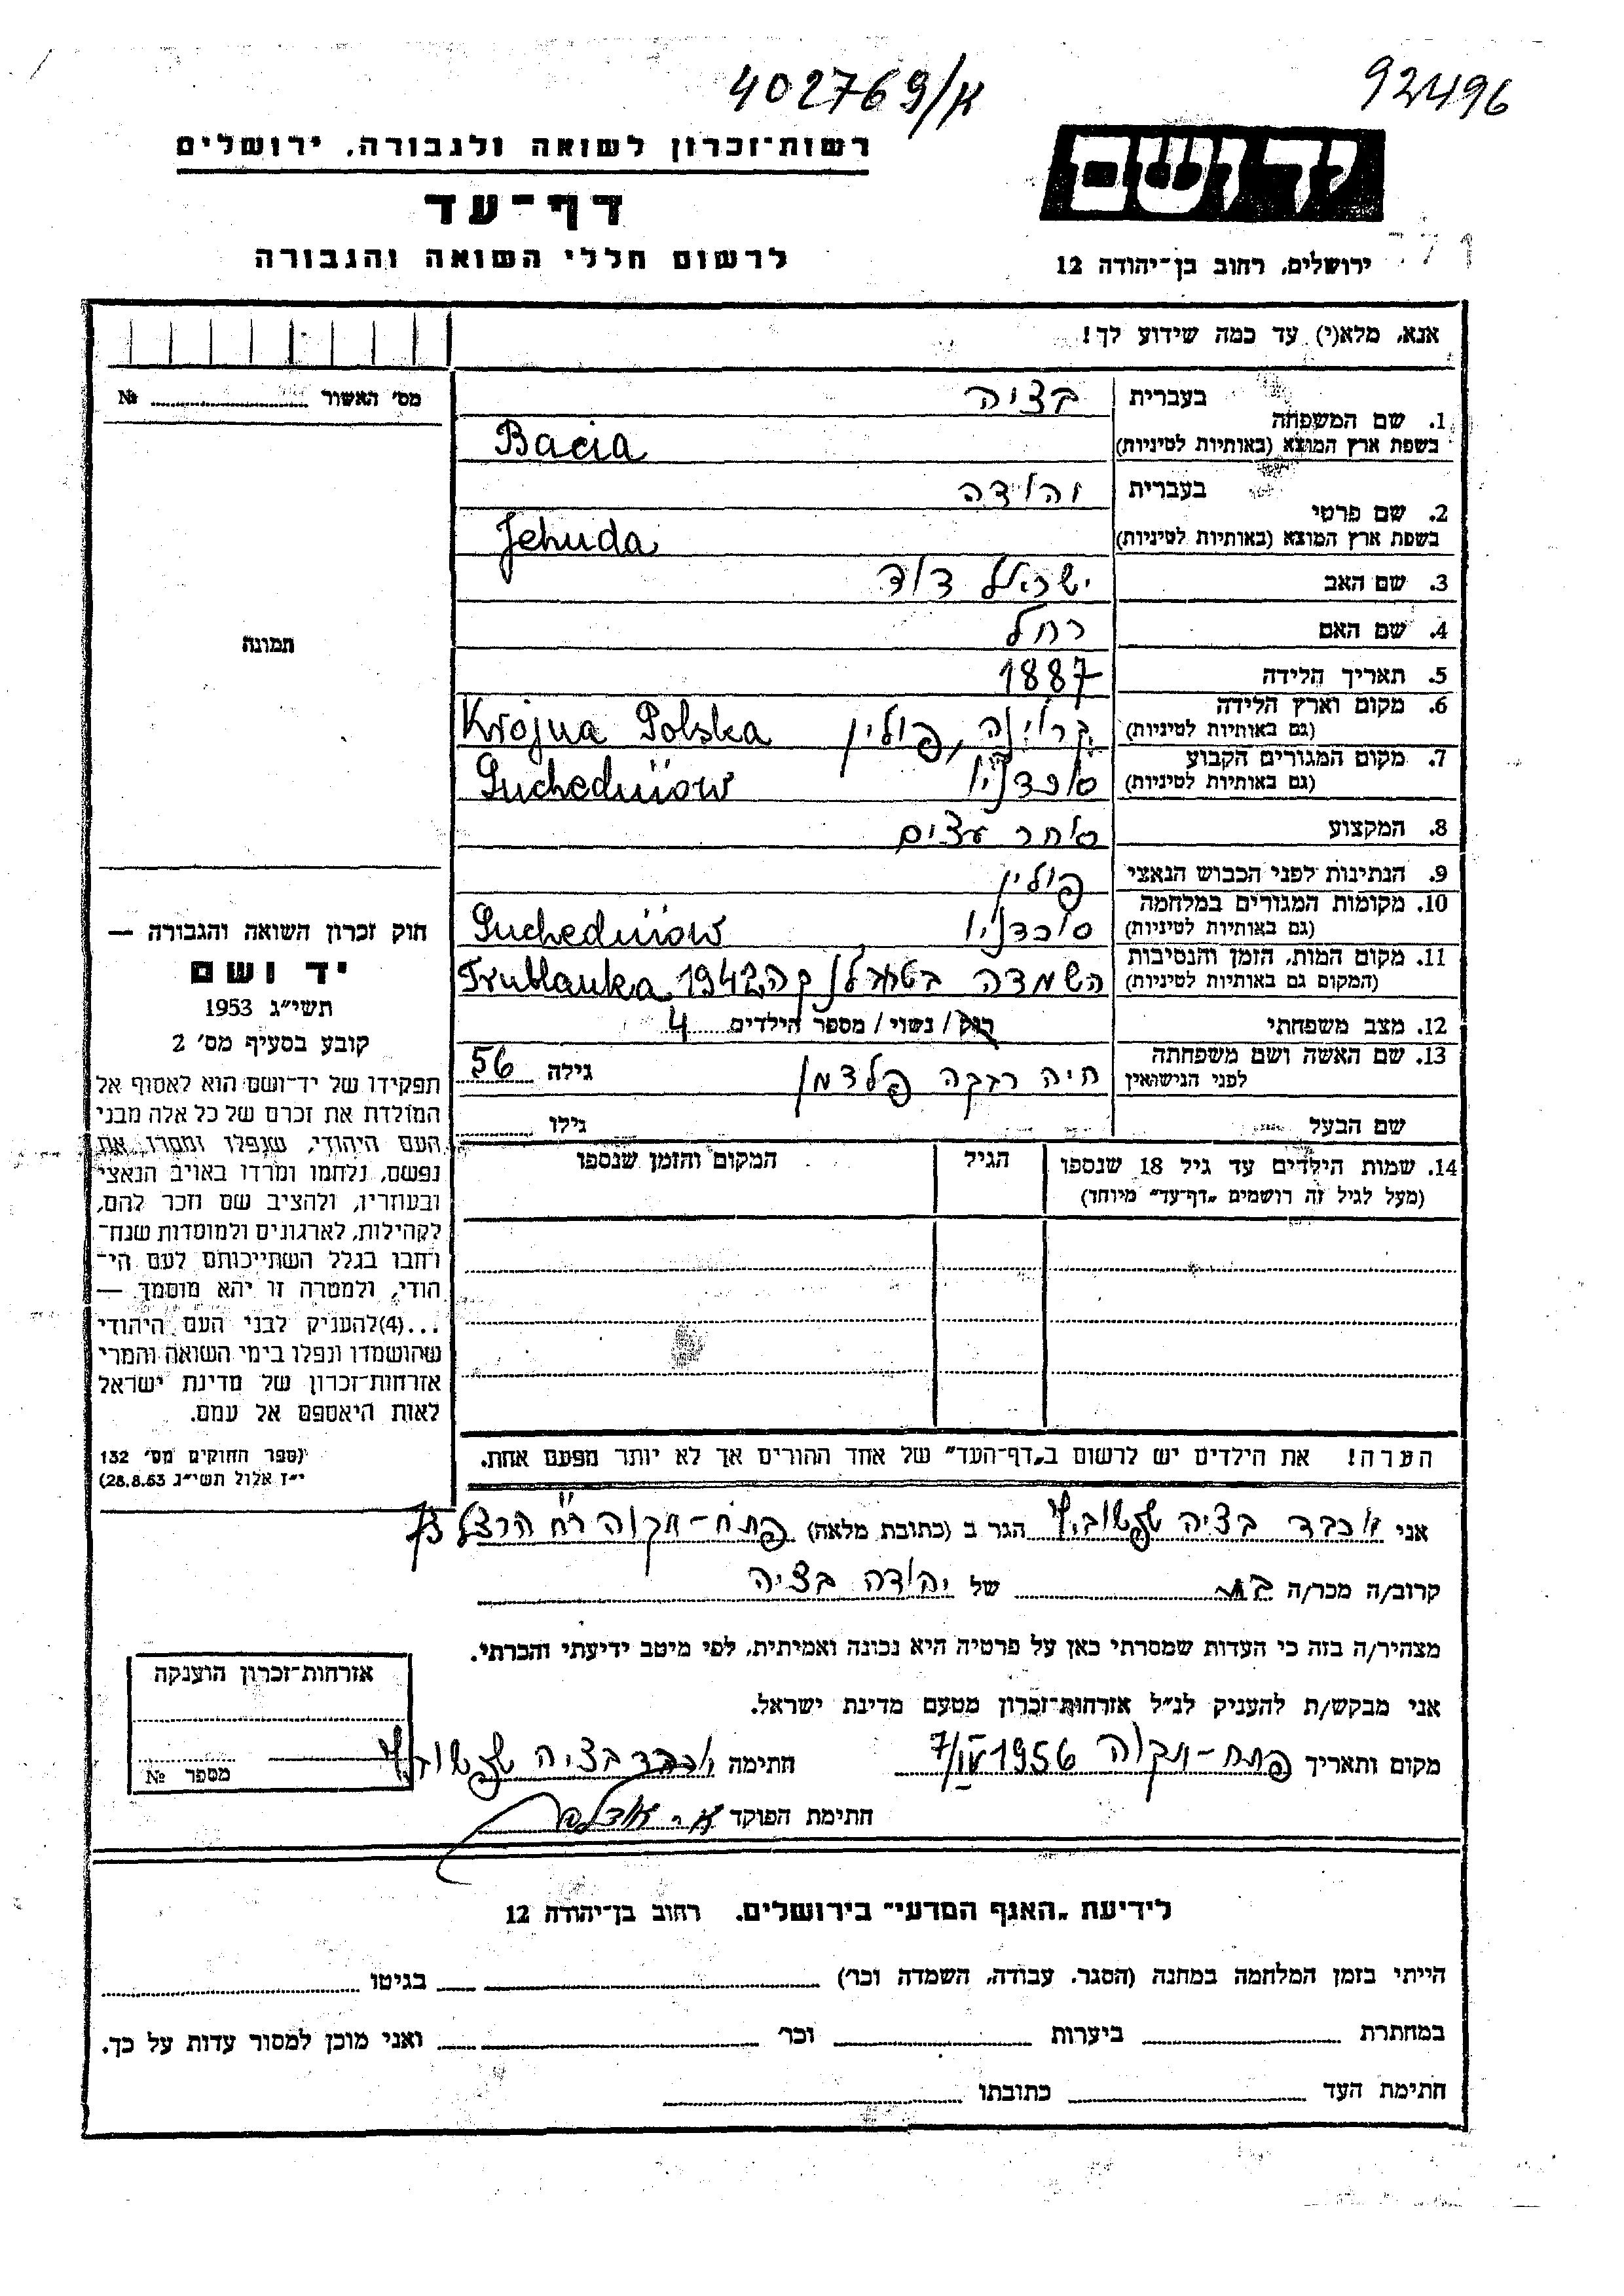 402769/א
92496
רשות־זכרון לשואה ולגבורה, ירושלים
דף־עד
לרשום חללי השואה והגבורה
יד ושם
ירושלים, רחוב בן־יהודה 12
אנא, מלא(י) עד כמה שידוע לך!
מס' האשור № 
1. שם המשפחה
בעברית בציה
בשפת ארץ המוצא (באותיות לטיניות) Bacia
2. שם פרטי
בעברית יהודה
בשפת ארץ המוצא (באותיות לטיניות) Jehuda
3. שם האב ישראל דוד
4. שם האם רחל
5. תאריך הלידה 1887
6. מקום וארץ הלידה
(גם באותיות לטיניות) פולין Krojna Polska
7. מקום המגורים הקבוע
(גם באותיות לטיניות) סוכדניו Suchedniow
8. המקצוע סוחר עצים
9. הנתינות לפני הכבוש הנאצי פולין
10. מקומות המגורים במלחמה
(גם באותיות לטיניות) סוכדניו Suchedniow
11. מקום המות, הזמן והנסיבות
(המקום גם באותיות לטיניות) השמדה 1942 Trublanka
12. מצב משפחתי רוק / נשוי / מספר הילדים 4
13. שם האשה ושם משפחתה
לפני הנישואין חיה רבקה פלדמן גילה 56
שם הבעל גילו
14. שמות הילדים עד גיל 18 שנספו
(מעל לגיל זה רושמים „דף־עד" מיוחד)
הגיל
המקום והזמן שנספו
הערה! את הילדים יש לרשום ב„דף־העד" של אחד ההורים אך לא יותר מפעם אחת.
תמונה
חוק זכרון השואה והגבורה —
יד ושם
תשי"ג 1953
קובע בסעיף מס' 2
תפקידו של יד־ושם הוא לאסוף אל
המולדת את זכרם של כל אלה מבני
העם היהודי, שנפלו ומסרו את
נפשם, נלחמו ומרדו באויב הנאצי
ובעוזריו, ולהציב שם וזכר להם,
לקהילות, לארגונים ולמוסדות שנח־
רחבו בגלל השתייכותם לעם הי־
הודי, ולמטרה זו יהא מוסמך —
...(4) להעניק לבני העם היהודי
שהושמדו ונפלו בימי השואה והמרי
אזרחות־זכרון של מדינת ישראל
לאות היאספם אל עמם.
(ספר החוקים מס' 132
י"ז אלול תשי"ג 28.8.53)
אני יוכבד בציה הגר ב (כתובת מלאה) פתח־תקוה רח' הרצל
קרוב/ה מכר/ה בת של יהודה בציה
מצהיר/ה בזה כי העדות שמסרתי כאן על פרטיה היא נכונה ואמיתית, לפי מיטב ידיעתי והכרתי.
אני מבקש/ת להעניק לנ"ל אזרחות־זכרון מטעם מדינת ישראל.
מקום ותאריך פתח־תקוה 7/IV 1956 חתימה יוכבד בציה
חתימת הפוקד
אזרחות־זכרון הוענקה
מספר №
לידיעת „האגף המדעי" בירושלים, רחוב בן־יהודה 12
הייתי בזמן המלחמה במחנה (הסגר, עבודה, השמדה וכו') בגיטו
במחתרת ביערות וכו' ואני מוכן למסור עדות על כך.
חתימת העד כתובתו